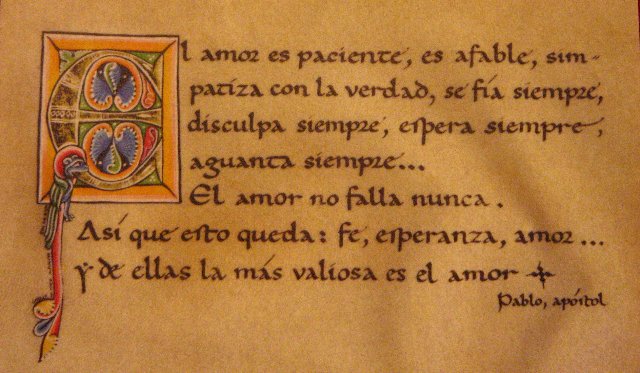 El amor es paciente, es afable, sim-
patiza con la verdad, se fía siempre,
disculpa siempre, espera siempre,
aguanta siempre...
El amor no falla nunca.
Así que esto queda: fe, esperanza, amor...
y de ellas la más valiosa es el amor
Pablo, apóstol